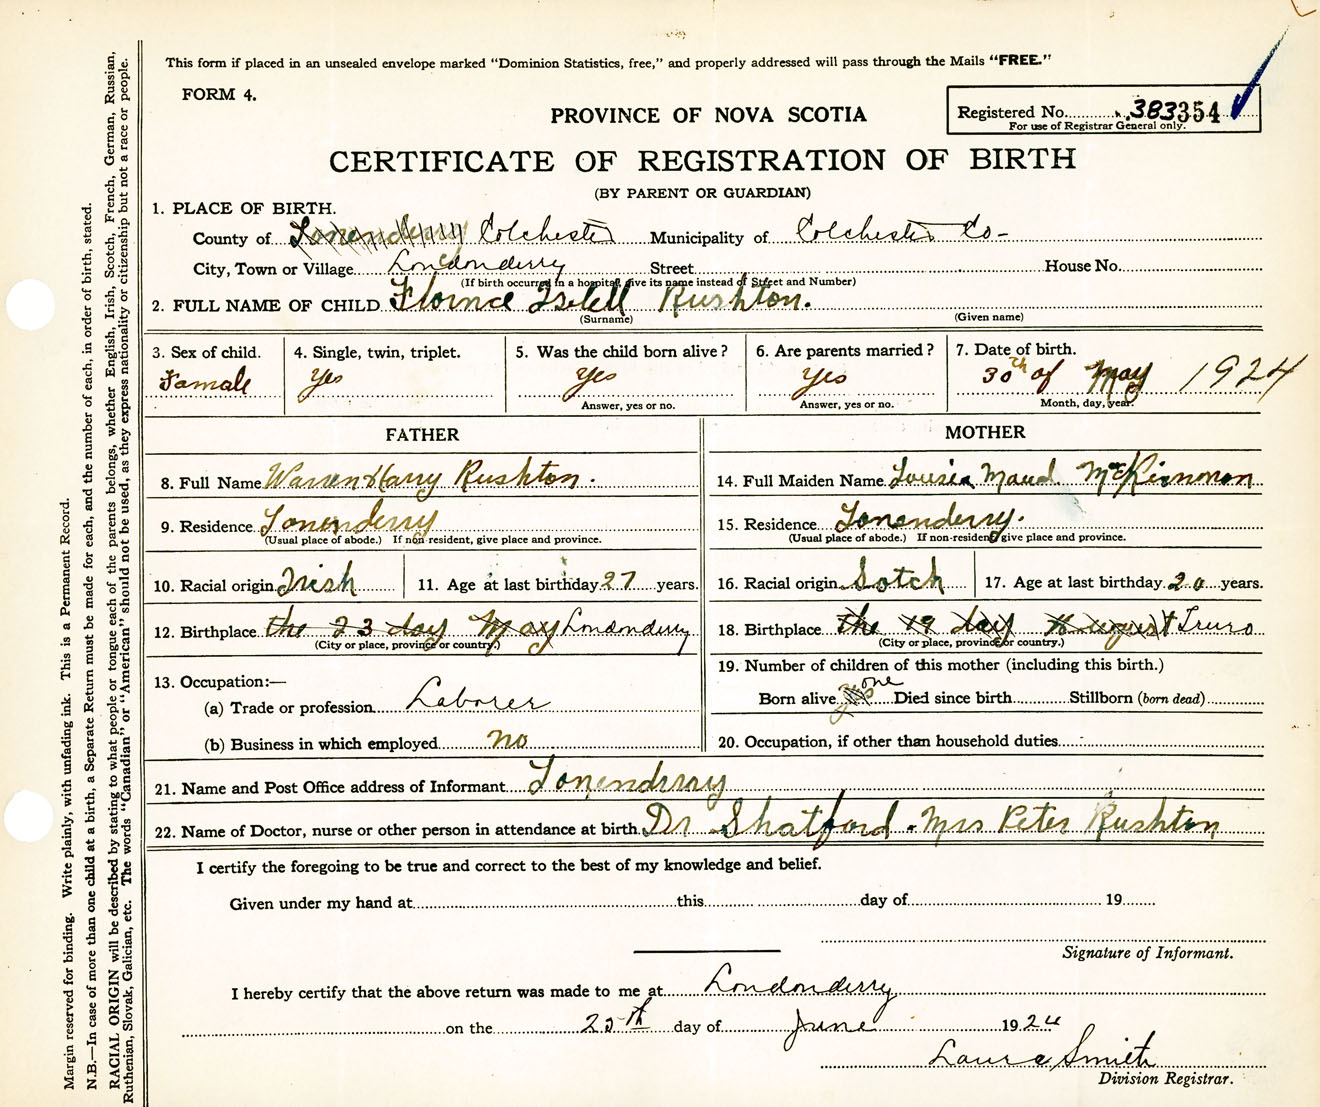 This form if placed in an unsealed envelope marked "Dominion Statistics, free," and properly addressed will pass through the Mails "FREE."
FORM 4.
PROVINCE OF NOVA SCOTIA
Registered No. 383354
For use of Registrar General only.
CERTIFICATE OF REGISTRATION OF BIRTH
(BY PARENT OR GUARDIAN)
1. PLACE OF BIRTH.
County of Lonenderry Colchester Municipality of Colchester Co-
City, Town or Village Londonderry Street House No.
(If birth occurred in a hospital, give its name instead of Street and Number)
2. FULL NAME OF CHILD Flornce Isbell Rushton.
(Surname) (Given name)
3. Sex of child. 4. Single, twin, triplet. 5. Was the child born alive? 6. Are parents married? 7. Date of birth.
Famale yes yes yes 30th of May 1924
Answer, yes or no. Answer, yes or no. Month, day, year.
FATHER MOTHER
8. Full Name Warren Harry Rushton. 14. Full Maiden Name Louisia Maud McKinnon
9. Residence Lonenderry 15. Residence Lonenderry.
(Usual place of abode.) If non-resident, give place and province. (Usual place of abode.) If non-resident, give place and province.
10. Racial origin Irish 11. Age at last birthday 27 years. 16. Racial origin Sotch 17. Age at last birthday 20 years.
12. Birthplace the 23 day May Londonderry 18. Birthplace the 19 day August Truro
(City or place, province or country.) (City or place, province or country.)
13. Occupation:—
19. Number of children of this mother (including this birth.)
(a) Trade or profession Laborer Born alive yes one Died since birth Stillborn (born dead)
(b) Business in which employed no 20. Occupation, if other than household duties
21. Name and Post Office address of Informant Lonendrray
22. Name of Doctor, nurse or other person in attendance at birth. Dr Shatford. Mrs Peter Rushton
I certify the foregoing to be true and correct to the best of my knowledge and belief.
Given under my hand at this day of 19
Signature of Informant.
I hereby certify that the above return was made to me at Londonderry
on the 25th day of June 1924
Laura Smith
Division Registrar.
Margin reserved for binding. Write plainly, with unfading ink. This is a Permanent Record.
N.B.—In case of more than one child at a birth, a Separate Return must be made for each, and the number of each, in order of birth, stated.
RACIAL ORIGIN will be described by stating to what people or tongue each of the parents belongs, whether English, Irish, Scotch, French, German, Russian,
Ruthenian, Slovak, Galician, etc. The words "Canadian" or "American" should not be used, as they express nationality or citizenship but not a race or people.